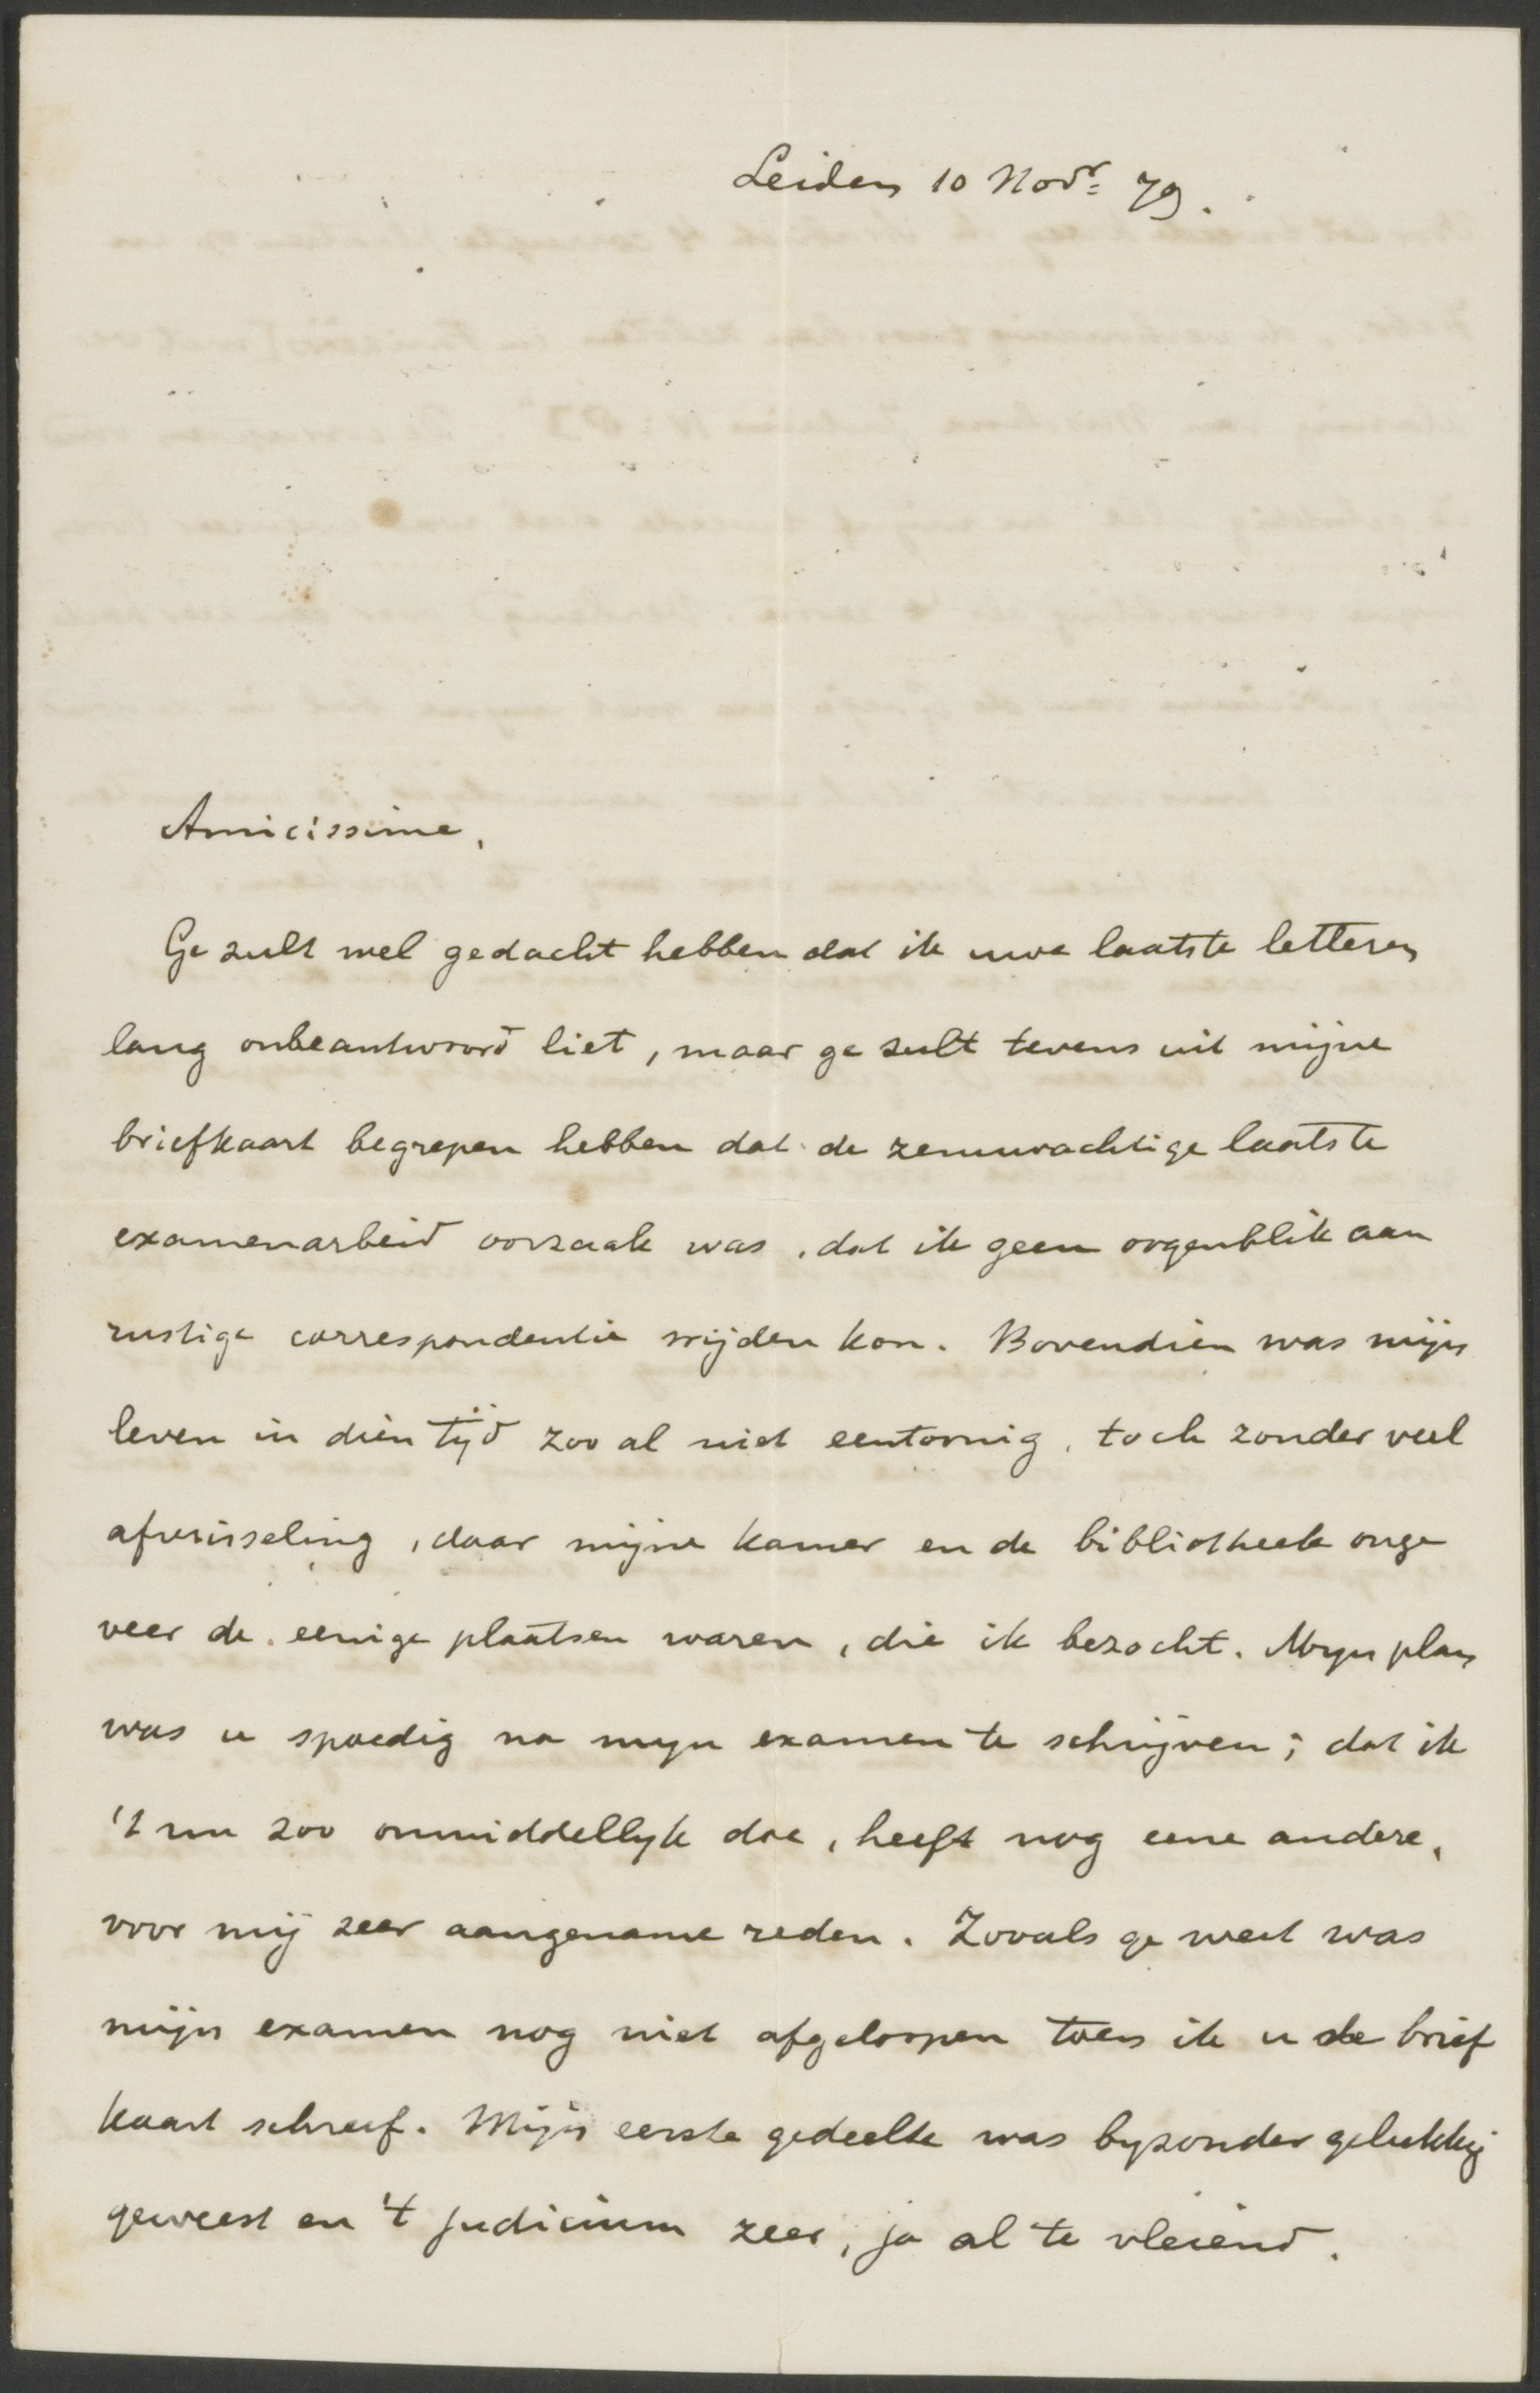 Leiden 10 Novr= 79.
Amicissime,
Ge zult wel gedacht hebben dat ik uwe laatste letteren
lang onbeantwoord liet, maar ge zult tevens uit mijne
briefkaart begrepen hebben dat de zenuwachtige laatste
examenarbeid oorzaak was, dat ik geen oogenblik aan
rustige correspondentie wijden kon. Bovendien was mijn
leven in dien tijd zoo al niet eentoonig, toch zonder veel
afwisseling, daar mijne kamer en de bibliotheek onge
veer de eenige plaatsen waren, die ik bezocht. Mijn plan
was u spoedig na mijn examen te schrijven; dat ik
't nu zoo onmiddellijk doe, heeft nog eene andere,
voor mij zeer aangename reden. Zooals ge weet was
mijn examen nog niet afgeloopen toen ik u de brief
kaart schreef. Mijn eerste gedeelte was byzonder gelukkig
geweest en 't judicium zeer, ja al te vleiend.